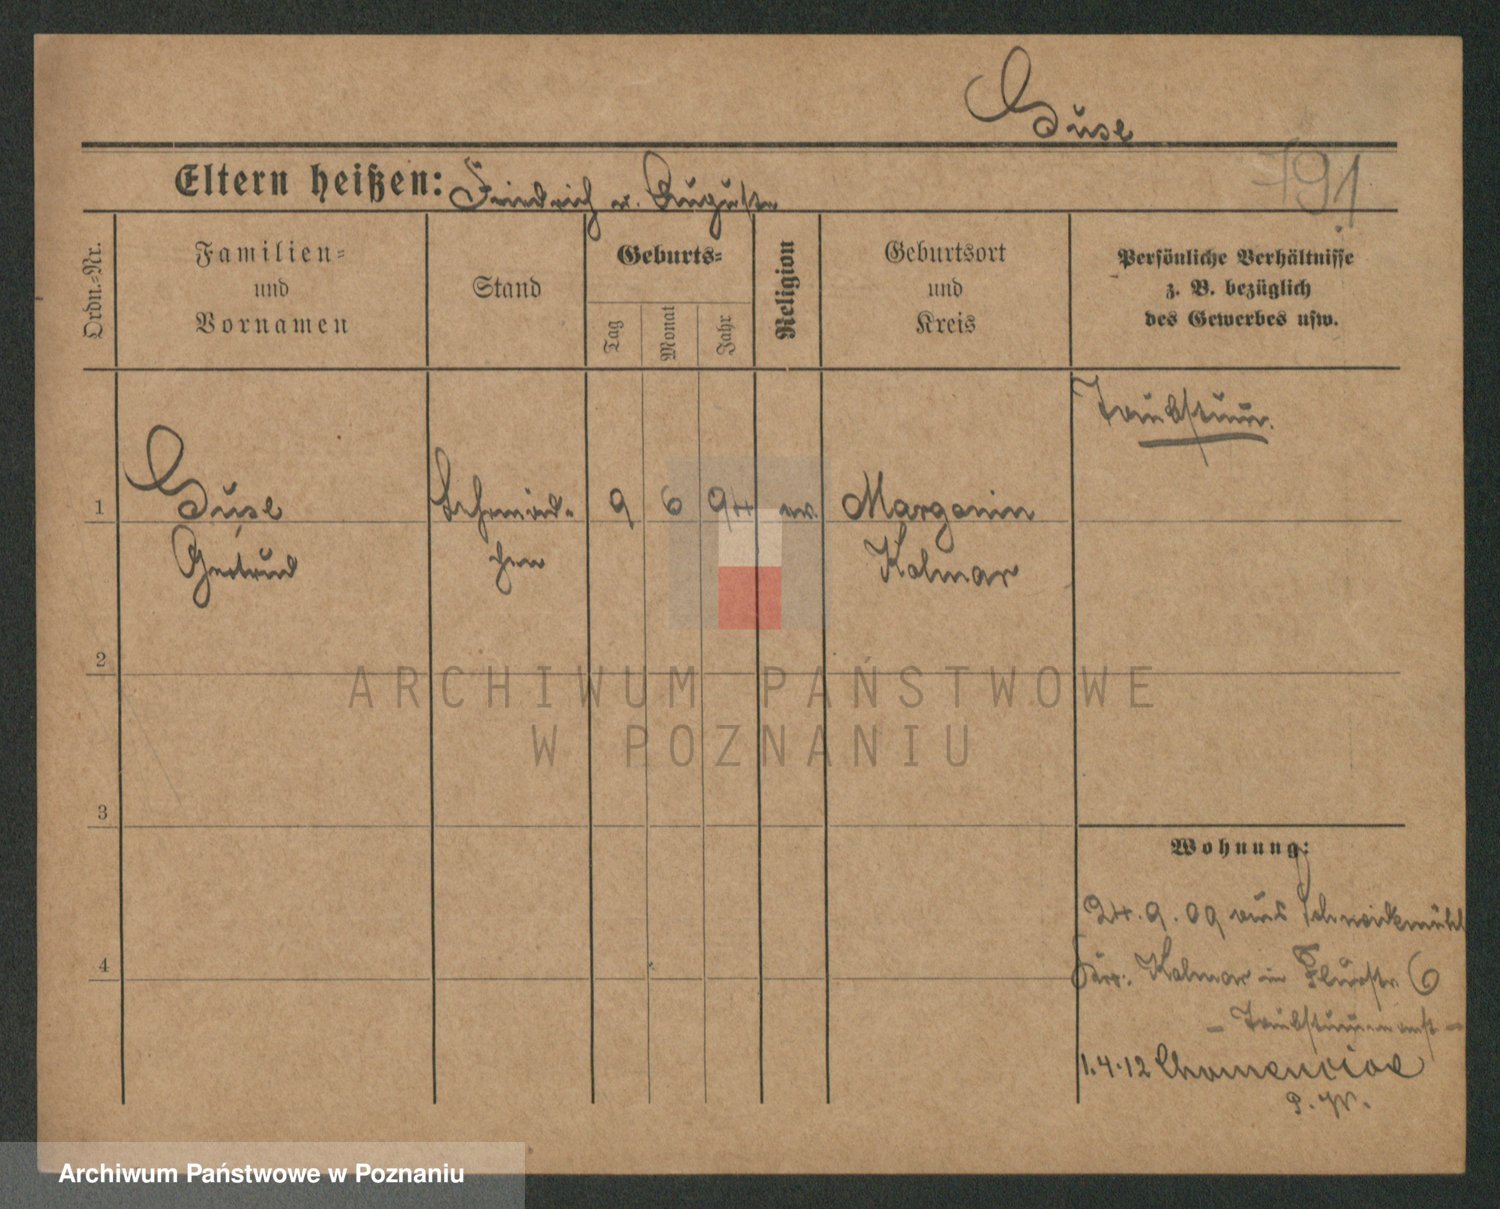 Suse
Eltern heißen: Friedrich u. Auguste
791
Ordn.-Nr.
Familien-
und
Vornamen
Stand
Geburts-
Tag
Monat
Jahr
Religion
Geburtsort
und
Kreis
Persönliche Verhältnisse
z. B. bezüglich
des Gewerbes usw.
Taubstum.
1
Suse
Gertrud
Lehrmäd-
chen
9
6
94
ev.
Margonin
Kolmar
2
ARCHIWUM PAŃSTWOWE
W POZNANIU
3
4
Wohnung:
24.9.09 aus Schneidemühl
Kolmar in Flurstr 6
– Taubstummenanst –
1.4.12
P. W.
Archiwum Państwowe w Poznaniu